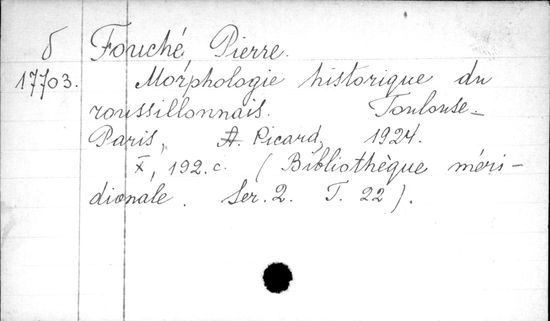 б Fouché Pierre.
17703. Morphologie historique du
roussillonnais. Toulouse-
Paris, A. Picard, 1924.
X, 192. c. (Bibliothèque méri-
dionale. Ser. 2. T. 22).